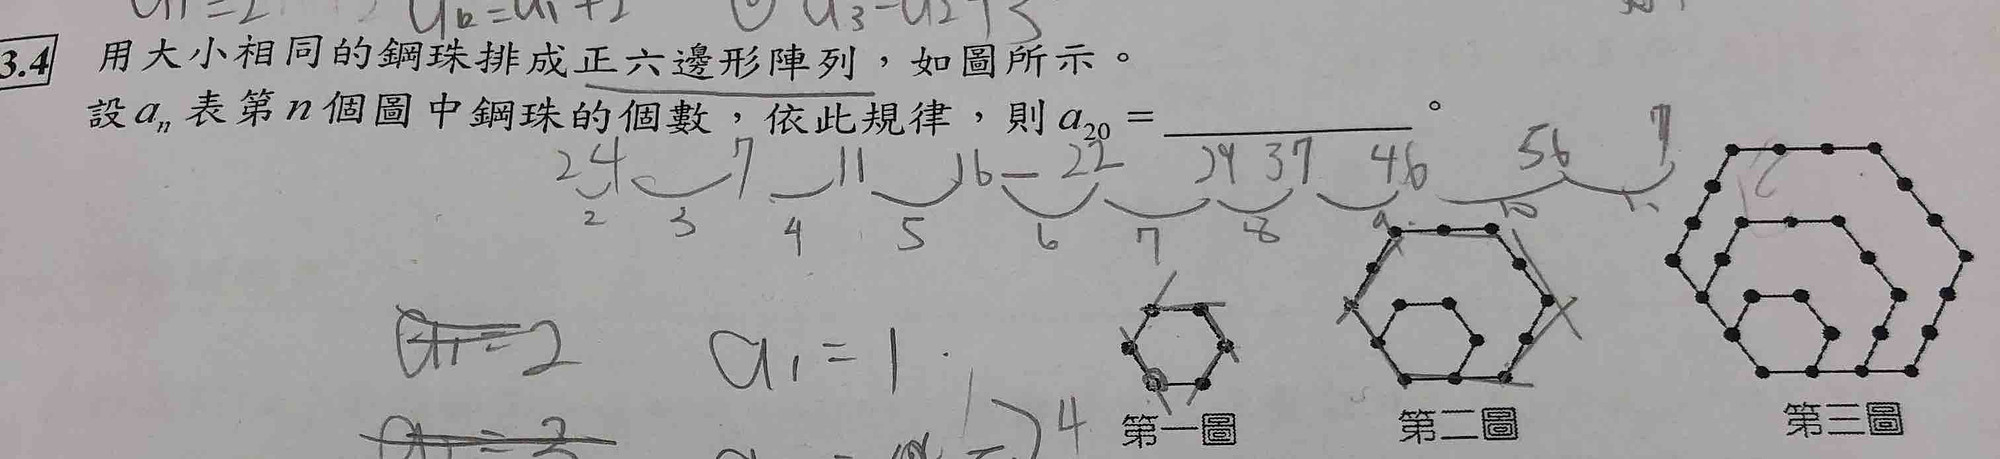 3.4 用大小相同的鋼珠排成正六邊形陣列，如圖所示。
設 aₙ 表第 n 個圖中鋼珠的個數，依此規律，則 a₂₀ = ________。
2 4 7 11 16 22 29 37 46 56
2 3 4 5 6 7 8 9 10 11
a₁ = 1
4
第一圖 第二圖 第三圖